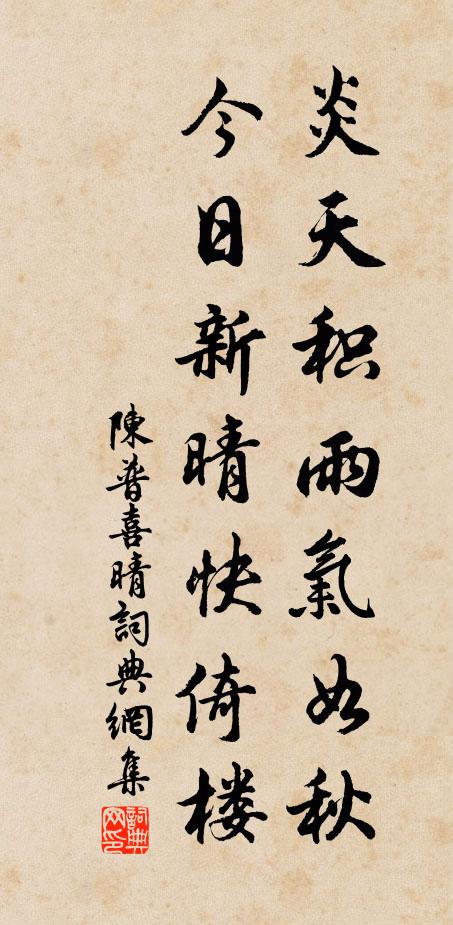 炎天积雨氣如秋
今日新晴快倚楼
陳普喜晴詞典網集
詞典网印